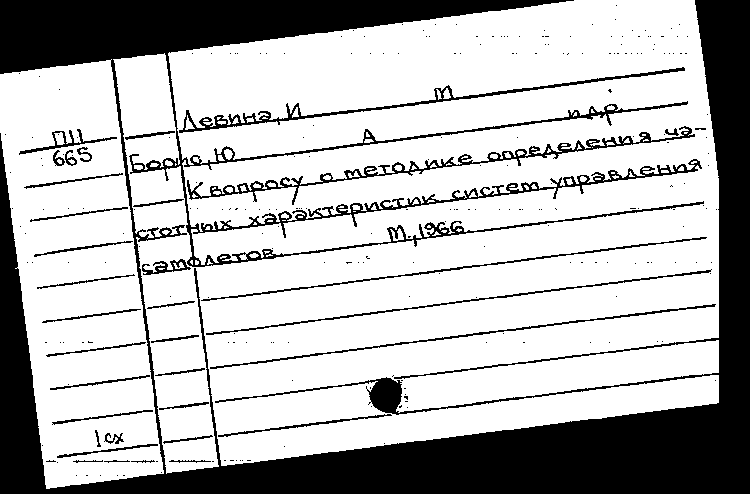 Левина, И М
П11
665
Борис, Ю А и др.
К вопросу о методике определения ча-
стотных характеристик систем управления
самолетов. М., 1966.
1сх